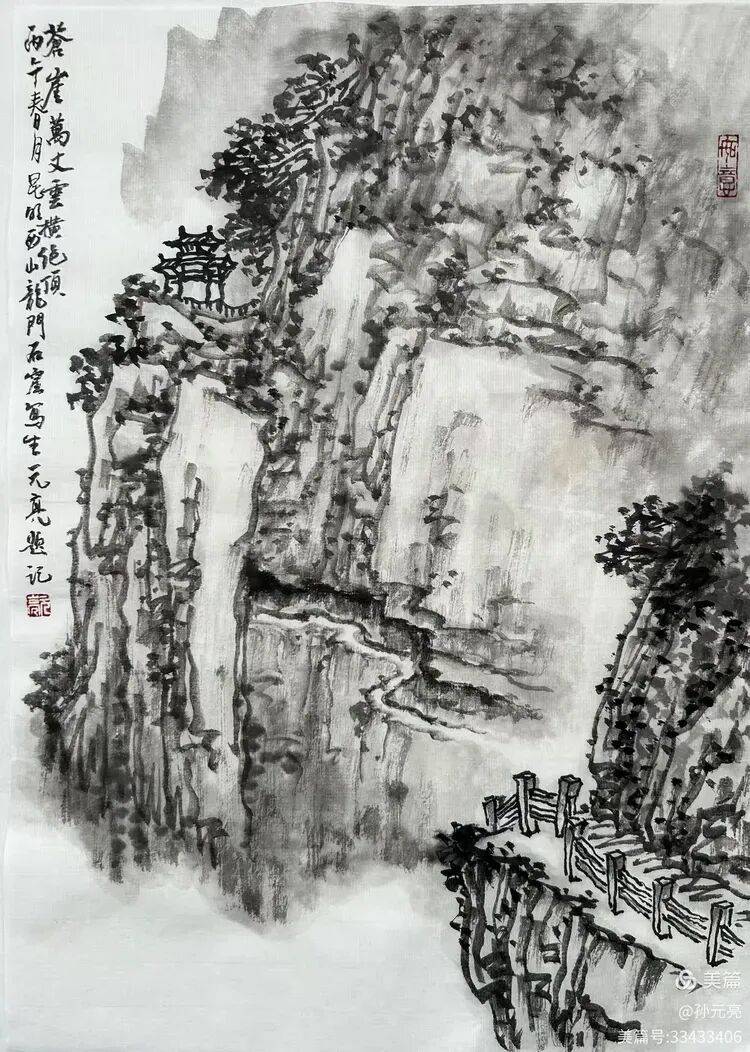 蒼崖萬丈雲橫絶頂
丙午春月昆明西山龍門石窟寫生元亮題記
美篇
@孙元亮
美篇号:33433406